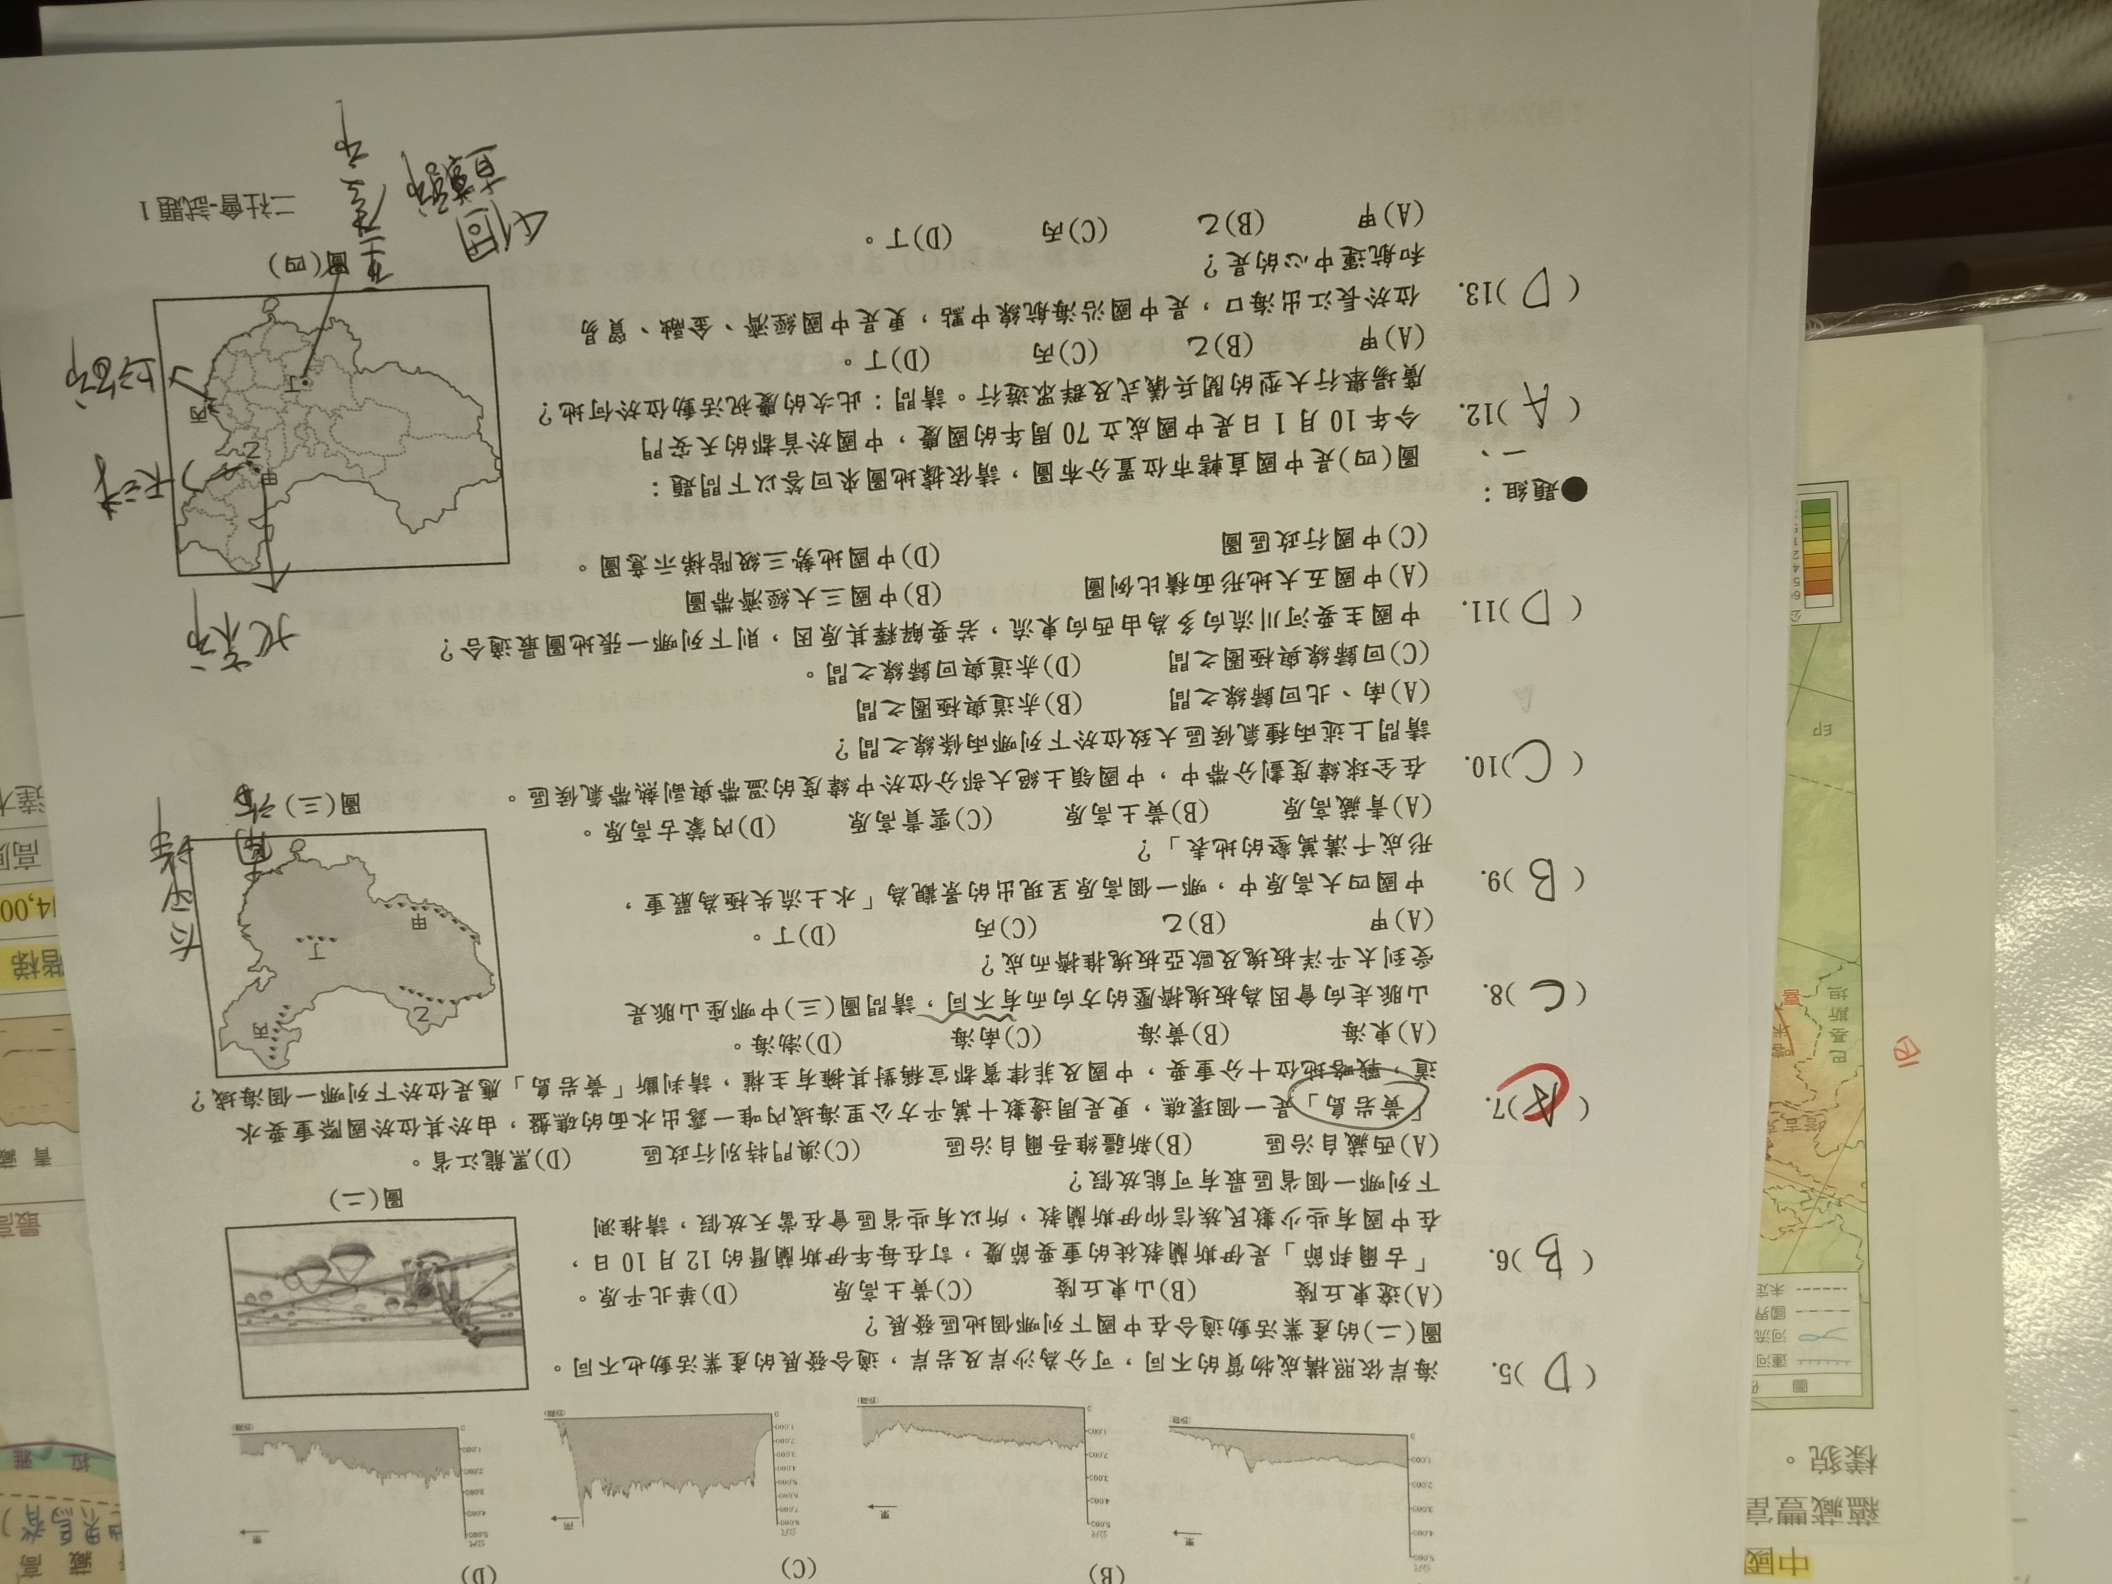 (B)
(C)
(D)
( D )5. 海岸依照構成物質的不同，可分為沙岸及岩岸，適合發展的產業活動也不同。
圖(二)的產業活動適合在中國下列哪個地區發展？
(A)遼東丘陵 (B)山東丘陵 (C)黃土高原 (D)華北平原。
圖(二)
( B )6. 「古爾邦節」是伊斯蘭教徒的重要節慶，訂在每年伊斯蘭曆的 12 月 10 日，
在中國有些少數民族信仰伊斯蘭教，所以有些省區會在當天放假，請推測
下列哪一個省區最有可能放假？
(A)西藏自治區 (B)新疆維吾爾自治區 (C)澳門特別行政區 (D)黑龍江省。
( A )7. 「黃岩島」是一個環礁，更是周邊數十萬平方公里海域內唯一露出水面的礁盤，由於其位於國際重要水
道，戰略地位十分重要，中國及菲律賓都宣稱對其擁有主權，請判斷「黃岩島」應是位於下列哪一個海域？
(A)東海 (B)黃海 (C)南海 (D)渤海。
( C )8. 山脈走向會因為板塊擠壓的方向而有不同，請問圖(三)中哪座山脈是
受到太平洋板塊及歐亞板塊推擠而成？
(A)甲 (B)乙 (C)丙 (D)丁。
( B )9. 中國四大高原中，哪一個高原呈現出的景觀為「水土流失極為嚴重，
形成千溝萬壑的地表」？
(A)青藏高原 (B)黃土高原 (C)雲貴高原 (D)內蒙古高原。
甲
乙
丙
丁
圖(三)
( C )10. 在全球緯度劃分帶中，中國領土絕大部分位於中緯度的溫帶與副熱帶氣候區。
請問上述兩種氣候區大致位於下列哪兩條線之間？
(A)南、北回歸線之間 (B)赤道與極圈之間
(C)回歸線與極圈之間 (D)赤道與回歸線之間。
( D )11. 中國主要河川流向多為由西向東流，若要解釋其原因，則下列哪一張地圖最適合？
(A)中國五大地形面積比例圖 (B)中國三大經濟帶圖
(C)中國行政區圖 (D)中國地勢三級階梯示意圖。
●題組：
一、 圖(四)是中國直轄市位置分布圖，請依據地圖來回答以下問題：
( A )12. 今年 10 月 1 日是中國成立 70 周年的國慶，中國於首都的天安門
廣場舉行大型的閱兵儀式及群眾遊行。請問：此次的慶祝活動位於何地？
(A)甲 (B)乙 (C)丙 (D)丁。
( D )13. 位於長江出海口，是中國沿海航線中點，更是中國經濟、金融、貿易
和航運中心的是？
(A)甲 (B)乙 (C)丙 (D)丁。
北京市
天津
上海市
重慶市
甲
乙
丙
丁
圖(四)
4個
直轄市
二社會-試題 1
中國
蘊藏豐富
樣貌。
運河
河流
國界
未定
巴基斯坦
階梯
4,00
最高
青 藏